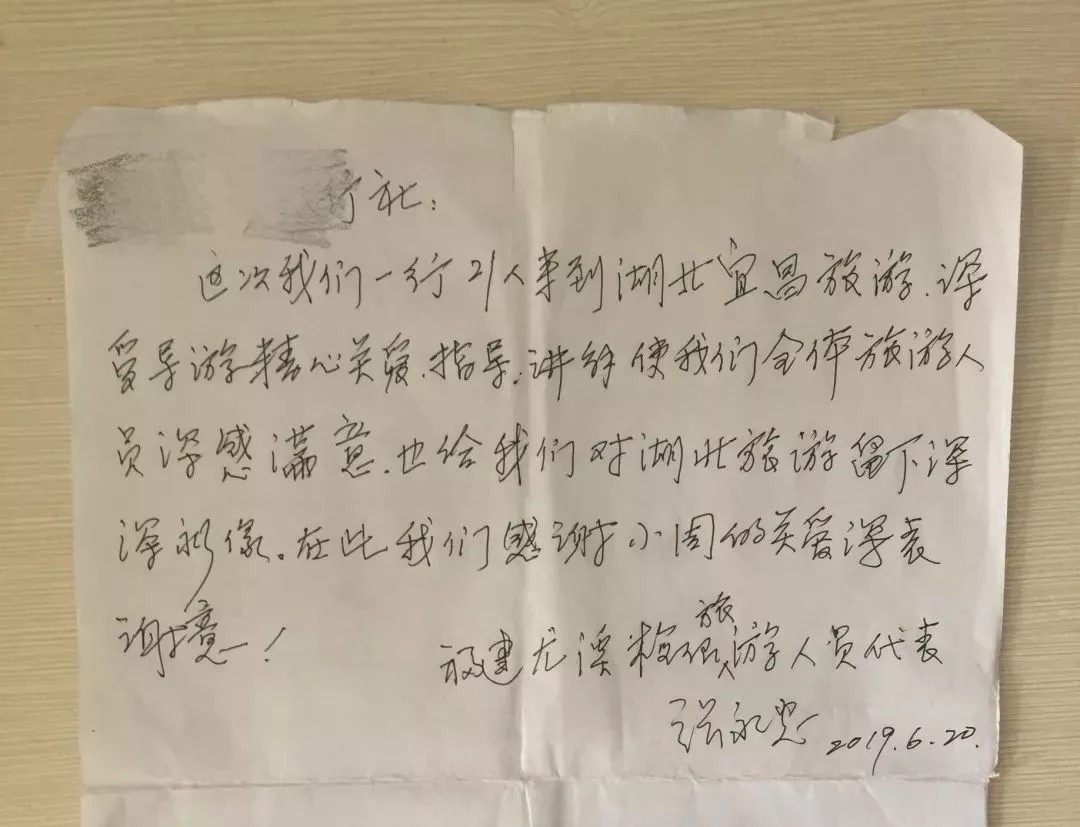 行社：
这次我们一行21人来到湖北宜昌旅游.深
受导游精心关爱.指导.讲解使我们全体旅游人
员深感满意.也给我们对湖北旅游留下深
深印像。在此我们感谢小周的关爱深表
谢意！
福建尤溪梅仙旅游人员代表
张永 2019.6.20.